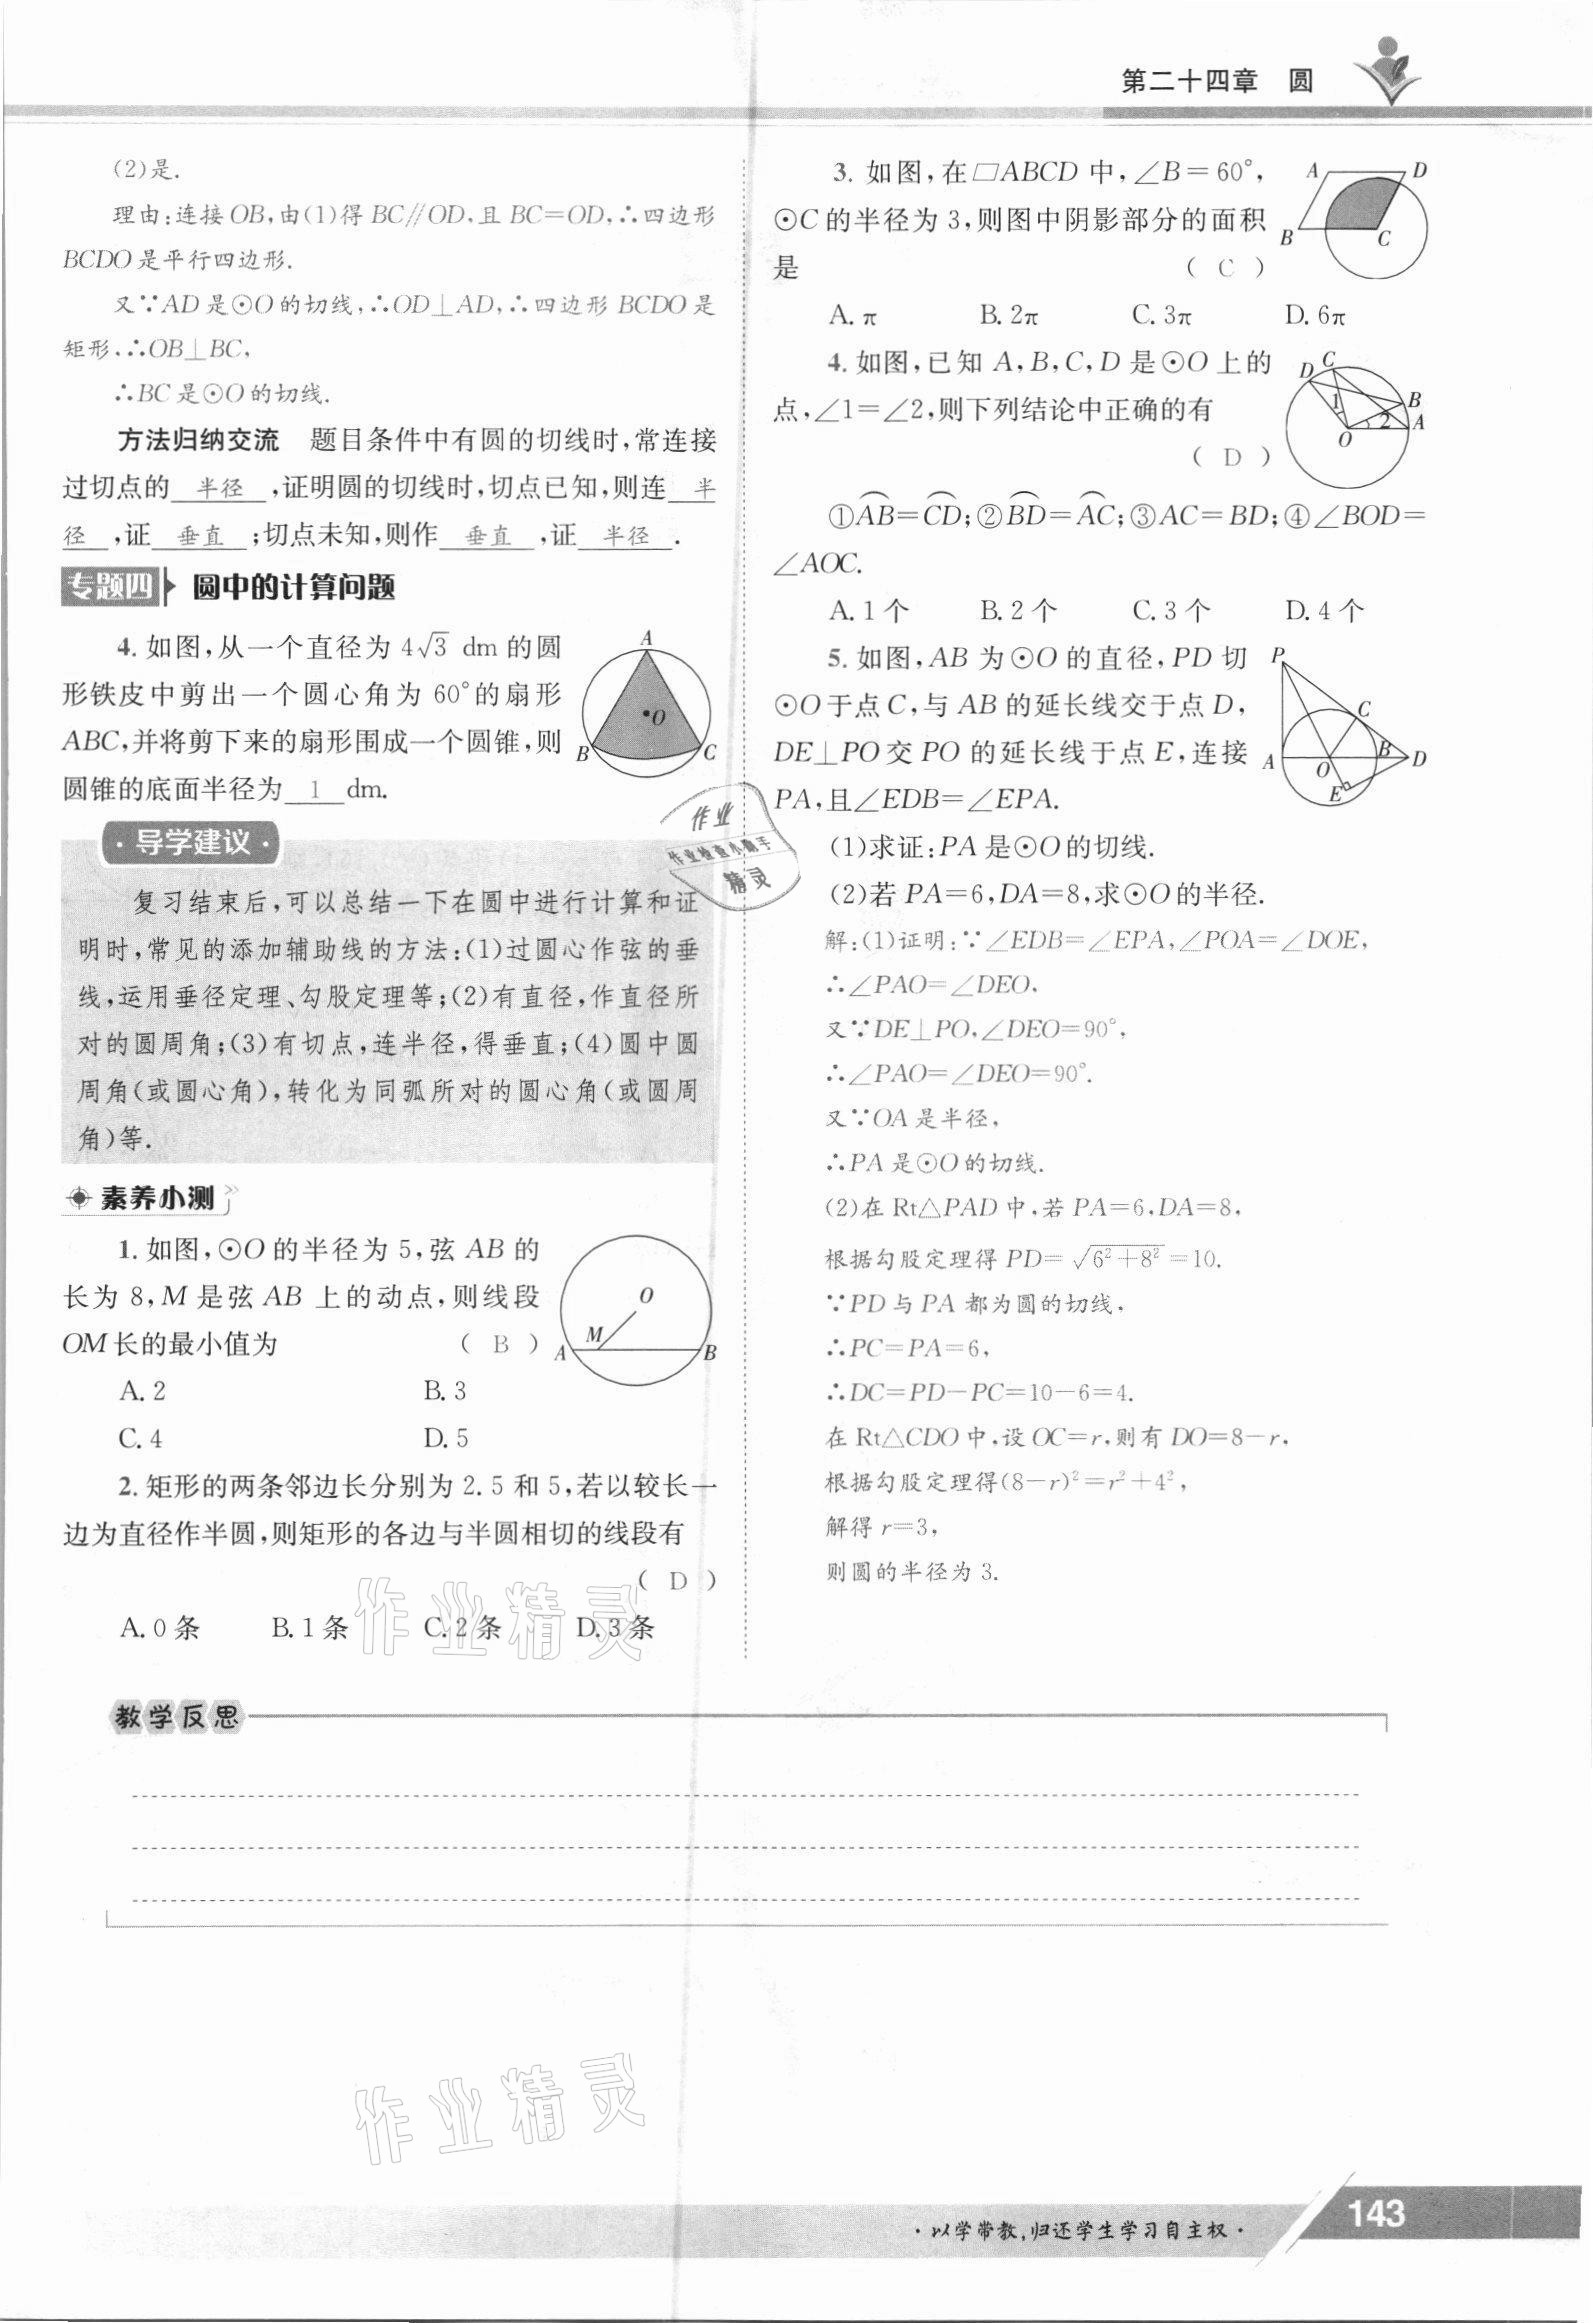 第二十四章 圆
(2)是.
理由:连接OB,由(1)得BC∥OD,且BC=OD,∴四边形
BCDO是平行四边形.
又∵AD是⊙O的切线,∴OD⊥AD,∴四边形BCDO是
矩形,∴OB⊥BC,
∴BC是⊙O的切线.
方法归纳交流 题目条件中有圆的切线时,常连接
过切点的 半径 ,证明圆的切线时,切点已知,则连 半
径 ,证 垂直 ;切点未知,则作 垂直 ,证 半径 .
专题四 圆中的计算问题
4. 如图,从一个直径为 4√3 dm 的圆
形铁皮中剪出一个圆心角为 60°的扇形
ABC,并将剪下来的扇形围成一个圆锥,则
圆锥的底面半径为 1 dm.
A
O
B
C
·导学建议·
复习结束后,可以总结一下在圆中进行计算和证
明时,常见的添加辅助线的方法:(1)过圆心作弦的垂
线,运用垂径定理、勾股定理等;(2)有直径,作直径所
对的圆周角;(3)有切点,连半径,得垂直;(4)圆中圆
周角(或圆心角),转化为同弧所对的圆心角(或圆周
角)等.
素养小测
1. 如图,⊙O的半径为5,弦AB的
长为8,M是弦AB上的动点,则线段
OM长的最小值为 ( B )
A. 2 B. 3
C. 4 D. 5
O
M
A
B
2. 矩形的两条邻边长分别为 2.5 和 5,若以较长一
边为直径作半圆,则矩形的各边与半圆相切的线段有
( D )
A. 0 条 B. 1 条 C. 2 条 D. 3 条
3. 如图,在▱ABCD 中,∠B=60°,
⊙C的半径为3,则图中阴影部分的面积
是 ( C )
A. π B. 2π C. 3π D. 6π
A D
B C
4. 如图,已知 A,B,C,D 是⊙O 上的
点,∠1=∠2,则下列结论中正确的有
( D )
①A͡B=C͡D;②B͡D=A͡C;③AC=BD;④∠BOD=
∠AOC.
A. 1 个 B. 2 个 C. 3 个 D. 4 个
D C
1 B
2 A
O
5. 如图,AB 为⊙O 的直径,PD 切
⊙O于点C,与 AB 的延长线交于点 D,
DE⊥PO交 PO 的延长线于点 E,连接
PA,且∠EDB=∠EPA.
P
C
A O B D
E
(1)求证:PA是⊙O的切线.
(2)若 PA=6,DA=8,求⊙O的半径.
解:(1)证明:∵∠EDB=∠EPA,∠POA=∠DOE,
∴∠PAO=∠DEO.
又∵DE⊥PO,∠DEO=90°,
∴∠PAO=∠DEO=90°.
又∵OA是半径,
∴PA是⊙O的切线.
(2)在Rt△PAD中,若PA=6,DA=8,
根据勾股定理得PD=√6²+8²=10.
∵PD与PA都为圆的切线,
∴PC=PA=6,
∴DC=PD-PC=10-6=4.
在Rt△CDO中,设OC=r,则有DO=8-r,
根据勾股定理得(8-r)²=r²+4²,
解得 r=3,
则圆的半径为3.
作业
作业检查小助手
精灵
作业精灵
教学反思
作业精灵
·以学带教,归还学生学习自主权·
143